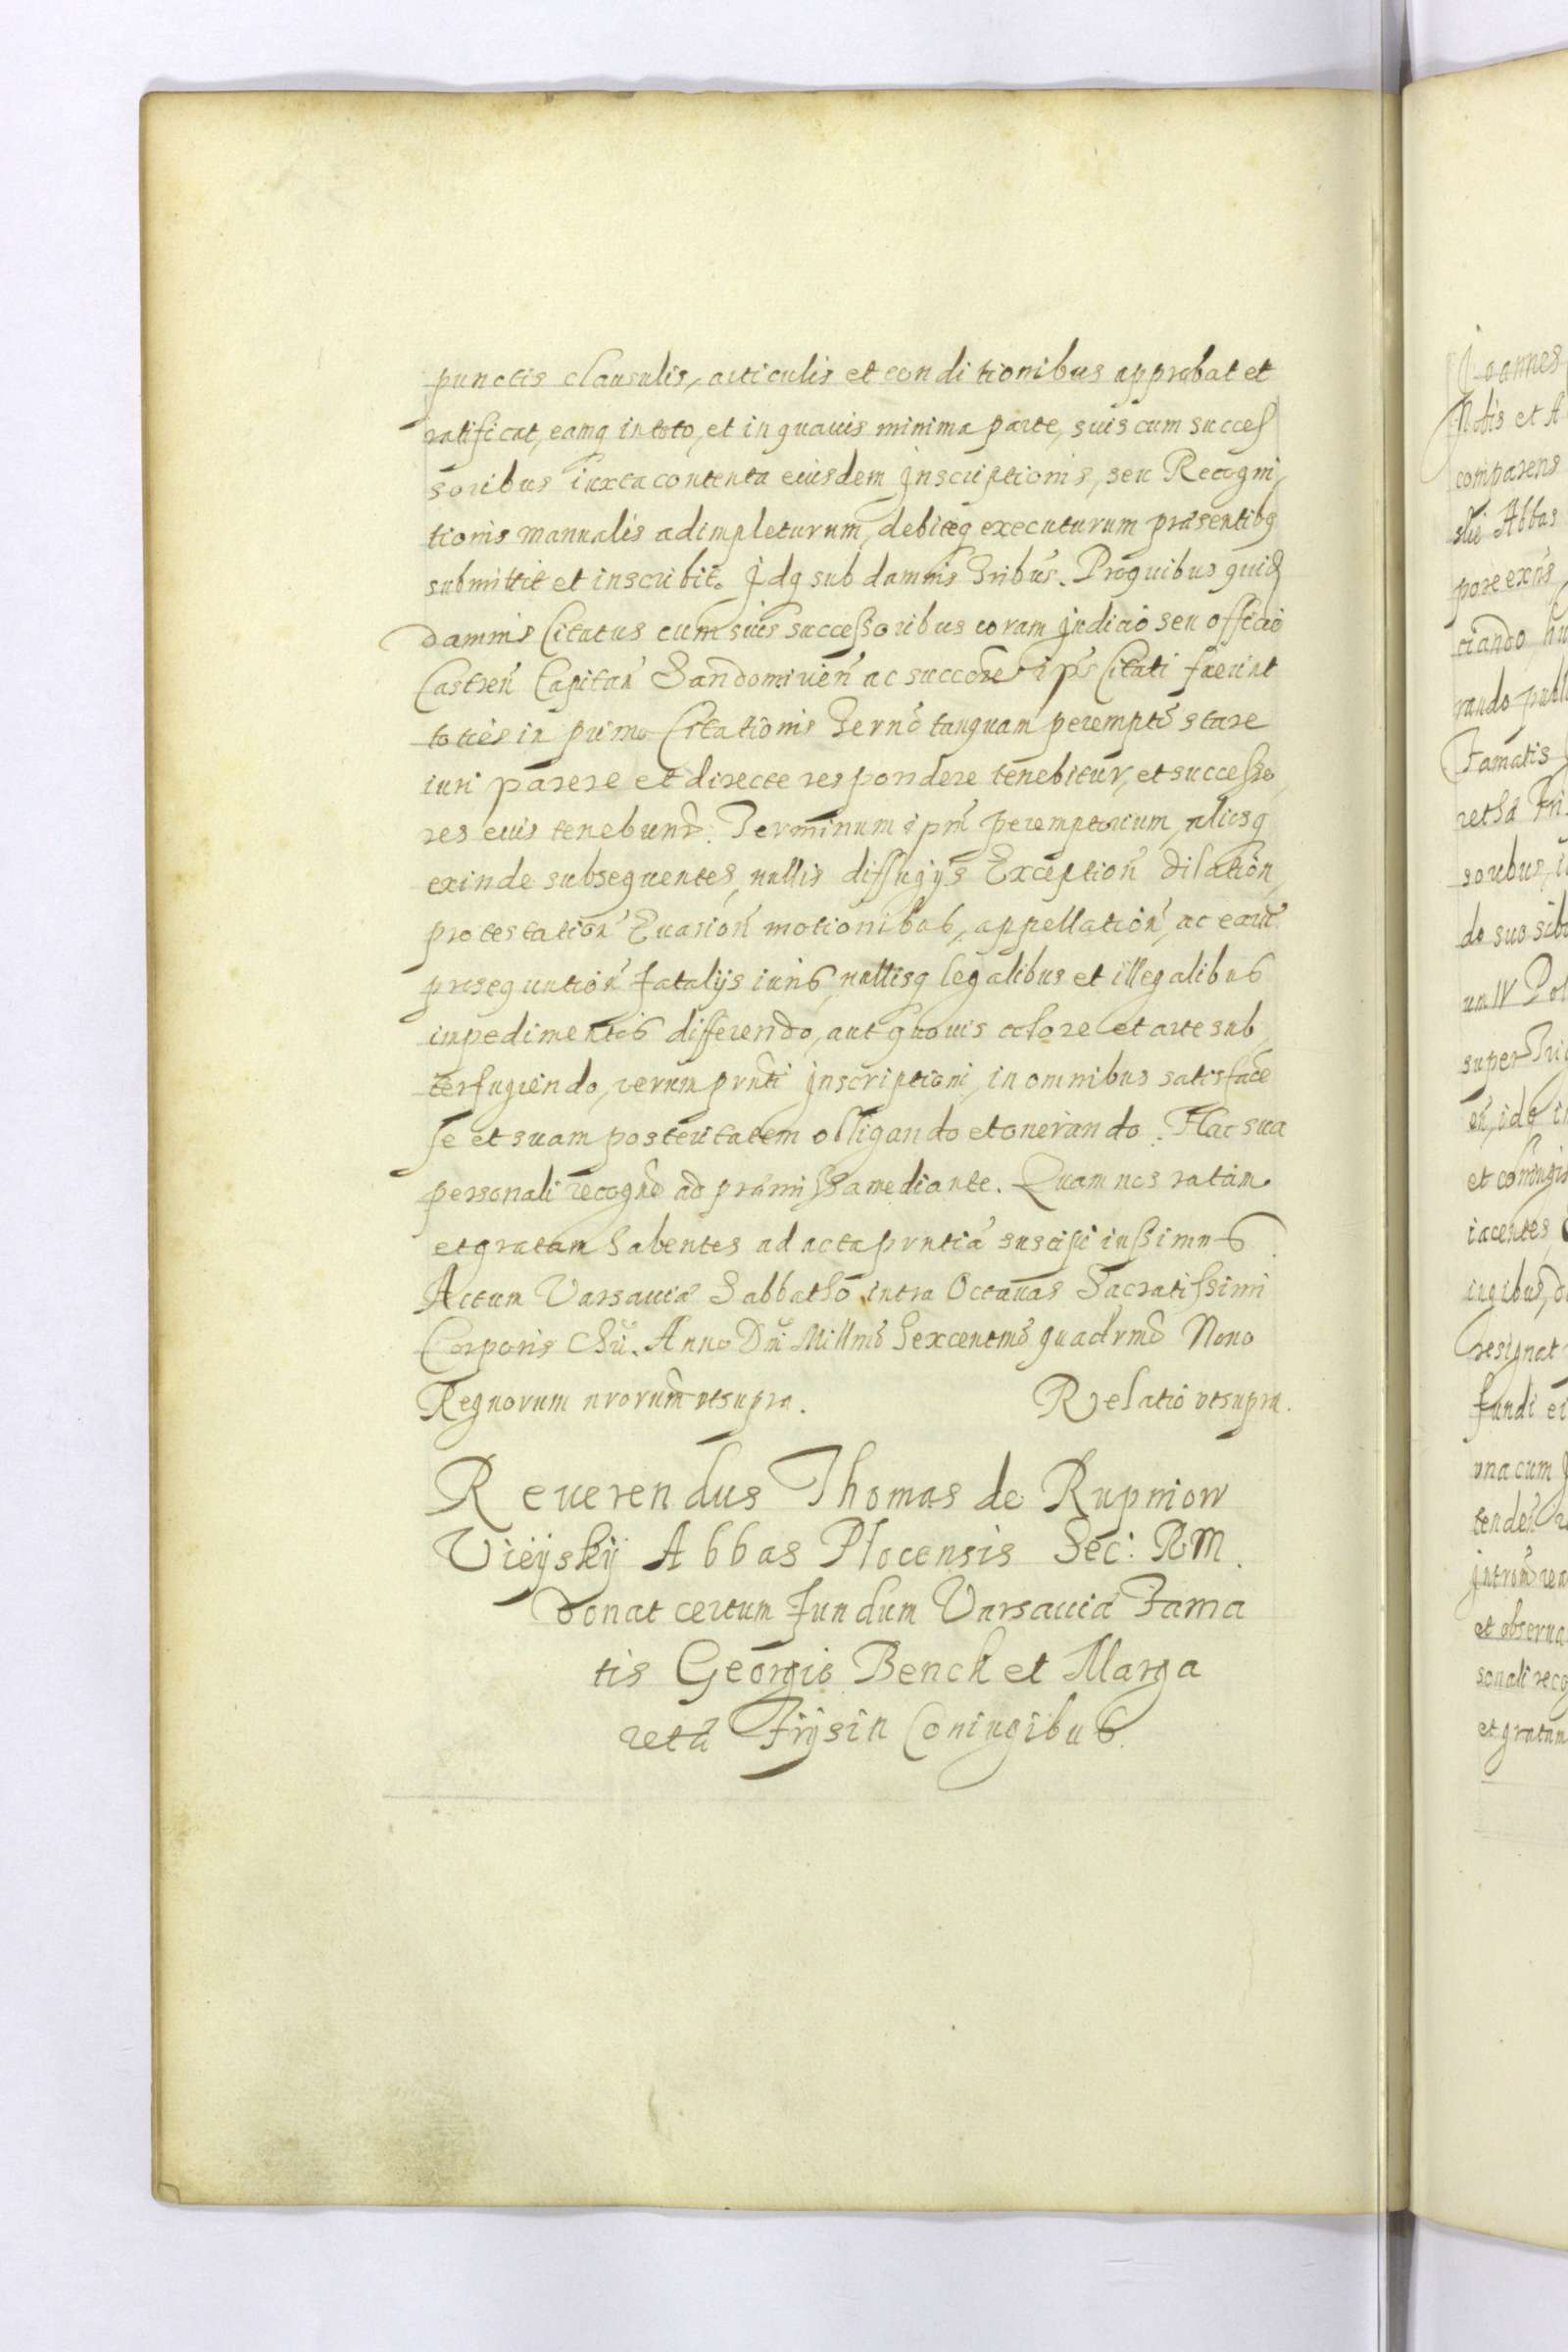 punctis clausulis, articulis et conditionibus approbat et
ratificat, eamq in toto, et in quavis minima parte, suis cum succes
soribus iuxta contenta eiusdem Inscriptionis, seu Recogni,
tionis manualis adimpleturum, debiteq executurum præsentibq
submittit et inscribit. Idq sub damnis Tribus. Pro quibus quid
damnis Citatus cum suis successoribus coram Judicio seu officio
Castren Capitan Sandomirien ac succore ips Citati fuerint
toties in primo Citationis Terno tanquam perempto stare
iuri parere et directe respondere tenebitur, et successo,
res eius tenebunt. Terminum ipm peremptorium, aliosq
exinde subsequentes, nullis diffugijs Exception dilation,
protestation Evasion motionibus, appellation, ac earu
prosequution fatalijs iuris, nullisq legalibus et illegalibus
inpedimentis differendo, aut quovis colore et arte sub
terfugiendo, verum prnti Inscriptioni, in omnibus satisface
se et suam posteritatem obligando et onerando. Hac sua
personali recogne ad præmissa mediante. Quam nos ratam
et gratam habentes ad acta prntia suscipi iussimus
Actum Varsaviæ Sabbatho intra Octavas Sacratissimi
Corporis Chri. Anno Dni Millmo Sexcentmo quadrmo Nono
Regnorum nrorum vt supra. Relatio vt supra.
Reverendus Thomas de Rupniow
Vieyskij Abbas Plocensis Sec: RM.
donat certum fundum Varsaviæ Fama
tis Georgio Bench et Marga
reta Frysin Coniugibus.
Joannes
Nobis et A
comparens
Abbas
pore exns
ciando hu
rando publ
Famatis
retha Fri
soribus,
de suo sibi
super
et coniugi
iacentes,
ingibus, d
resignat
fundi ei
vna cum J
et observa
sonali reco
et gratam